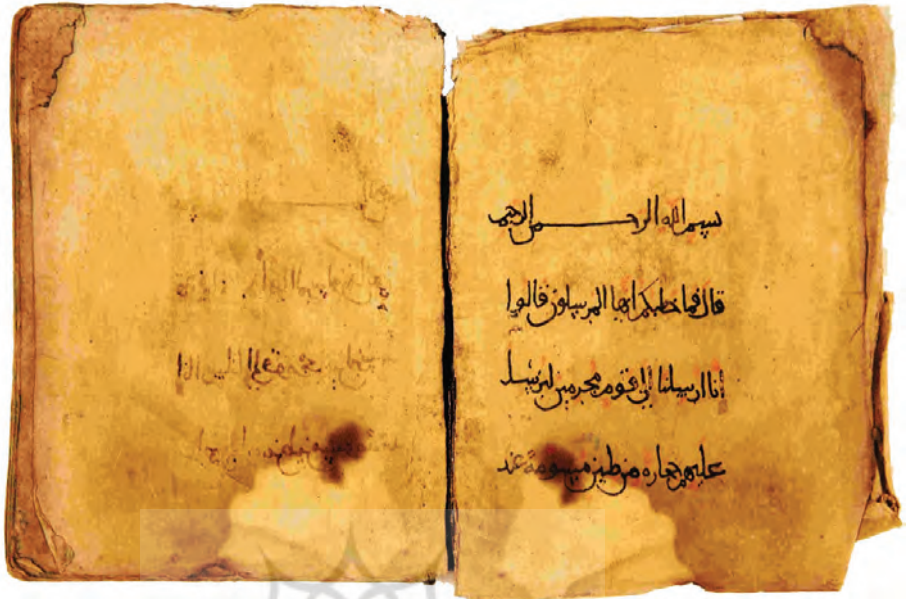 بسم الله الرحمن الرحيم
قال فما خطبكم ايها المرسلون قالوا
إنا ارسلنا إلى قوم مجرمين لنرسل
عليهم حجاره من طين مسومة عند